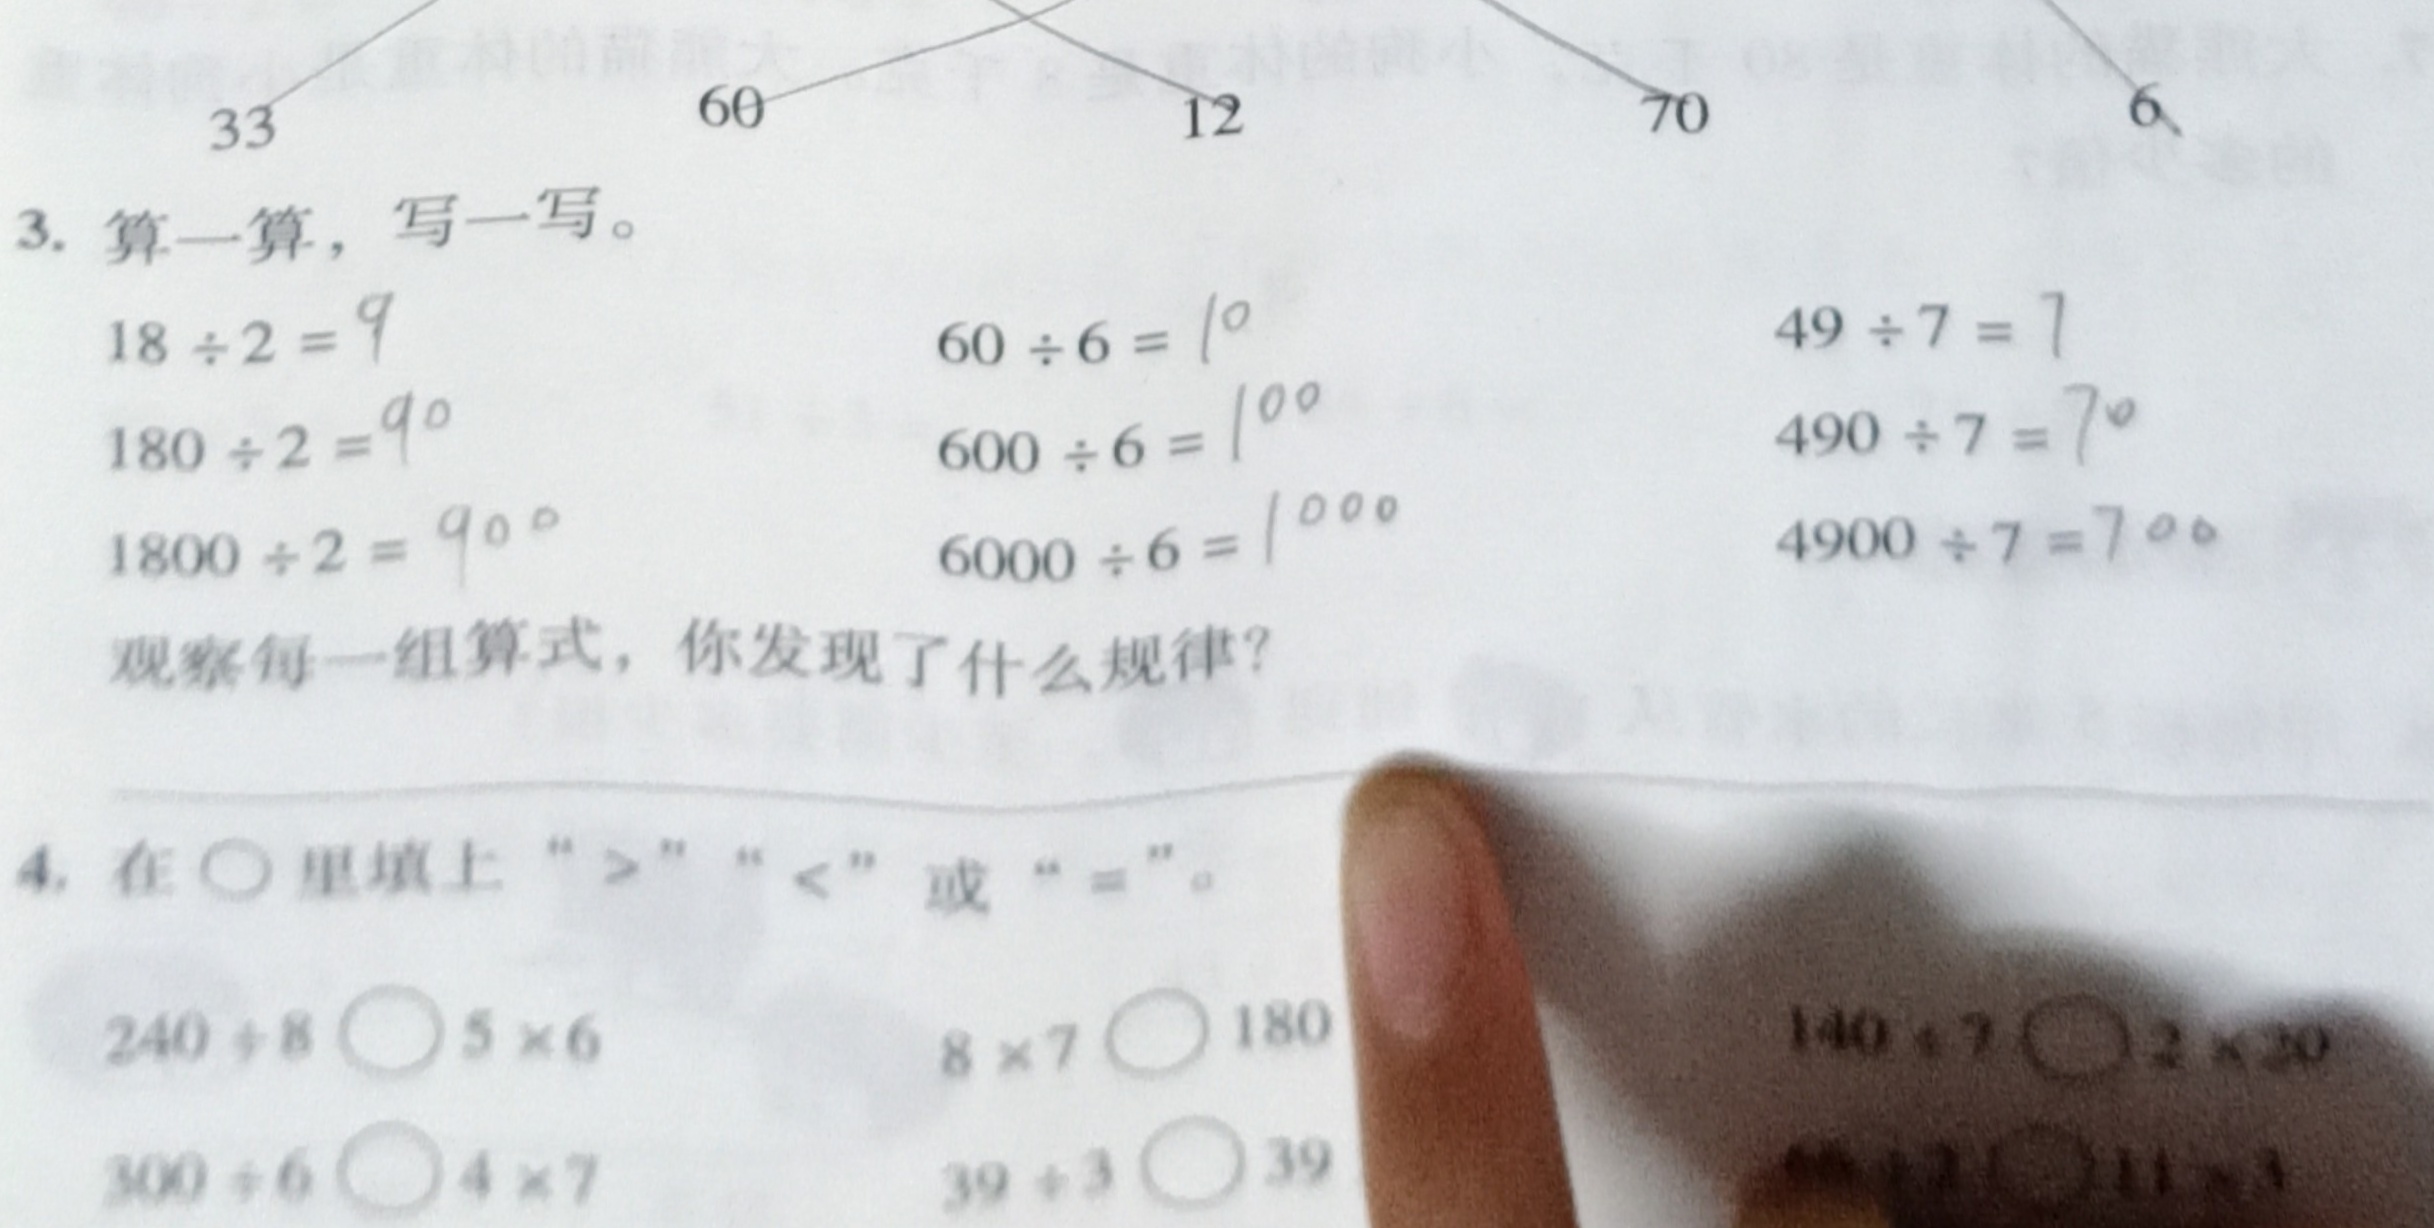 33 60 12 70 6
3. 算一算，写一写。
18÷2=9 60÷6=10 49÷7=7
180÷2=90 600÷6=100 490÷7=70
1800÷2=900 6000÷6=1000 4900÷7=700
观察每一组算式，你发现了什么规律？
4. 在○里填上“>”“<”或“=”。
240÷8○5×6 8×7○180 140÷7○2×20
300÷6○4×7 39÷3○39 ○11×